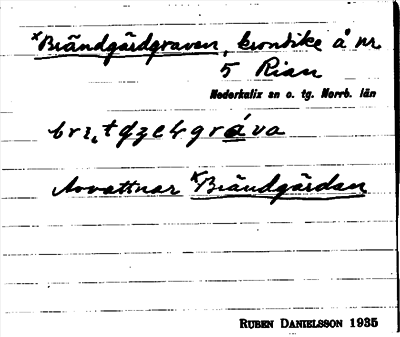 ˣBrändgärdgraven, krondike å nr
5 Rian
Nederkalix sn o. tg. Norrb. län
Avvattnar ˣBrändgärdan
RUBEN DANIELSSON 1935